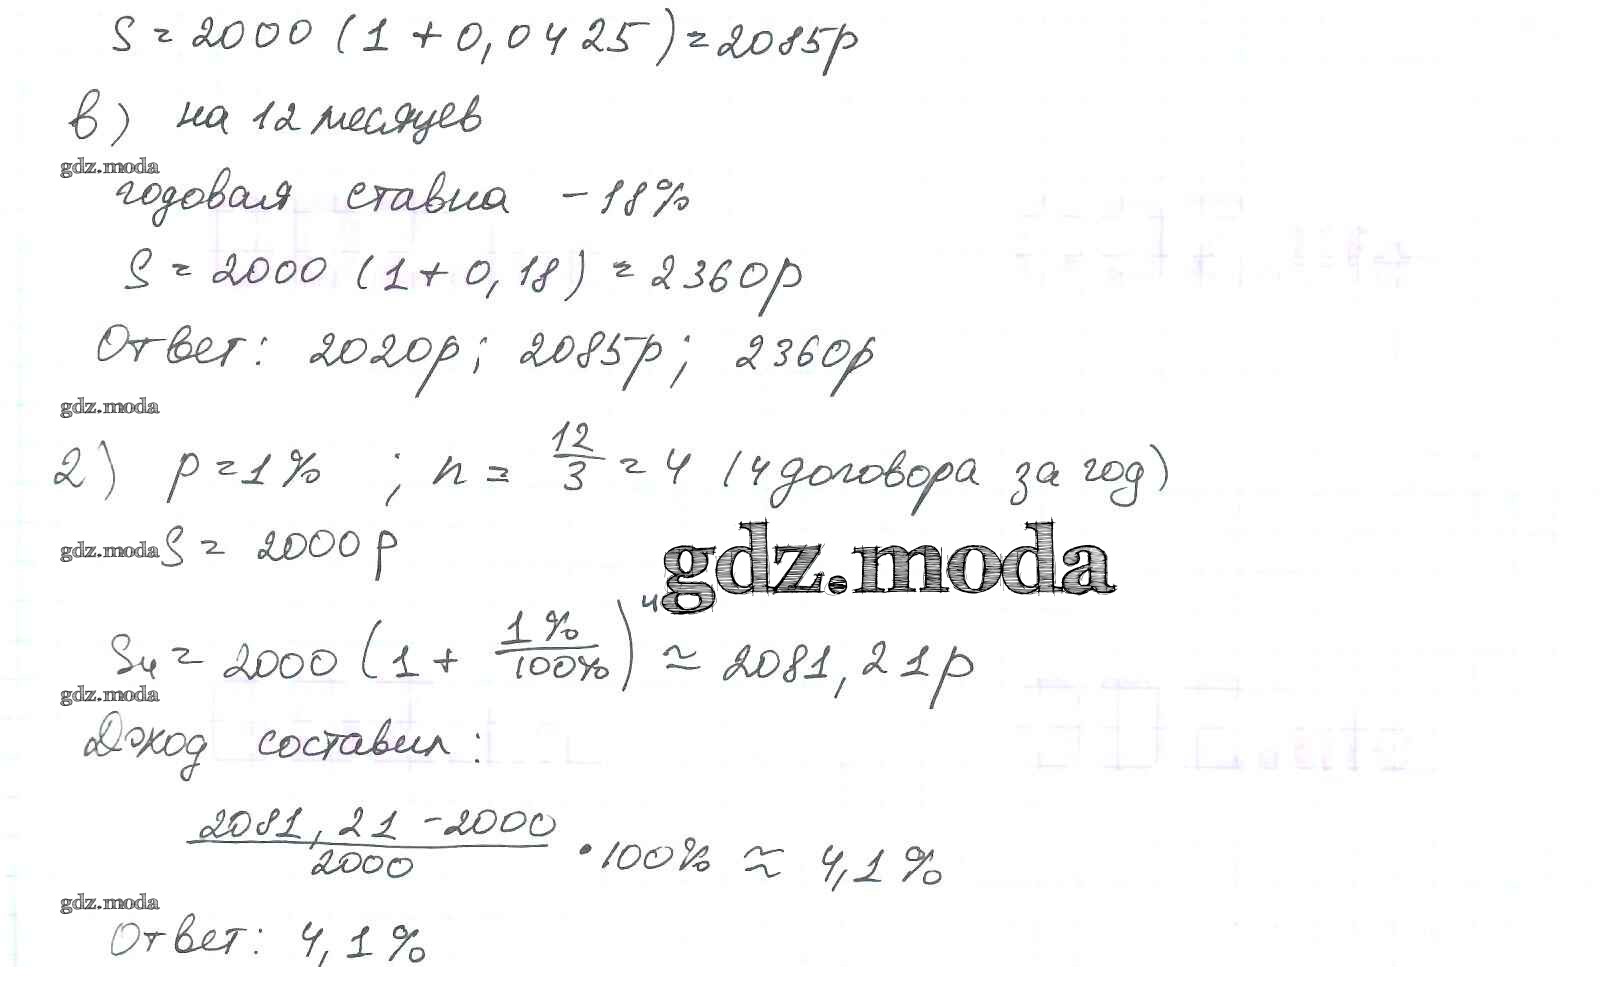 S = 2000 (1 + 0,0425) = 2085р
в) на 12 месяцев
gdz.moda
годовая ставка - 18%
S = 2000 (1 + 0,18) = 2360р
Ответ: 2020р; 2085р; 2360р
gdz.moda
2) p = 1% ; n = 12/3 = 4 (4 договора за год)
gdz.moda S = 2000р
gdz.moda
S₄ = 2000 (1 + 1%/100%)⁴ ≈ 2081,21р
gdz.moda
Доход составил:
2081,21 - 2000/2000 • 100% ≈ 4,1%
gdz.moda
Ответ: 4,1%